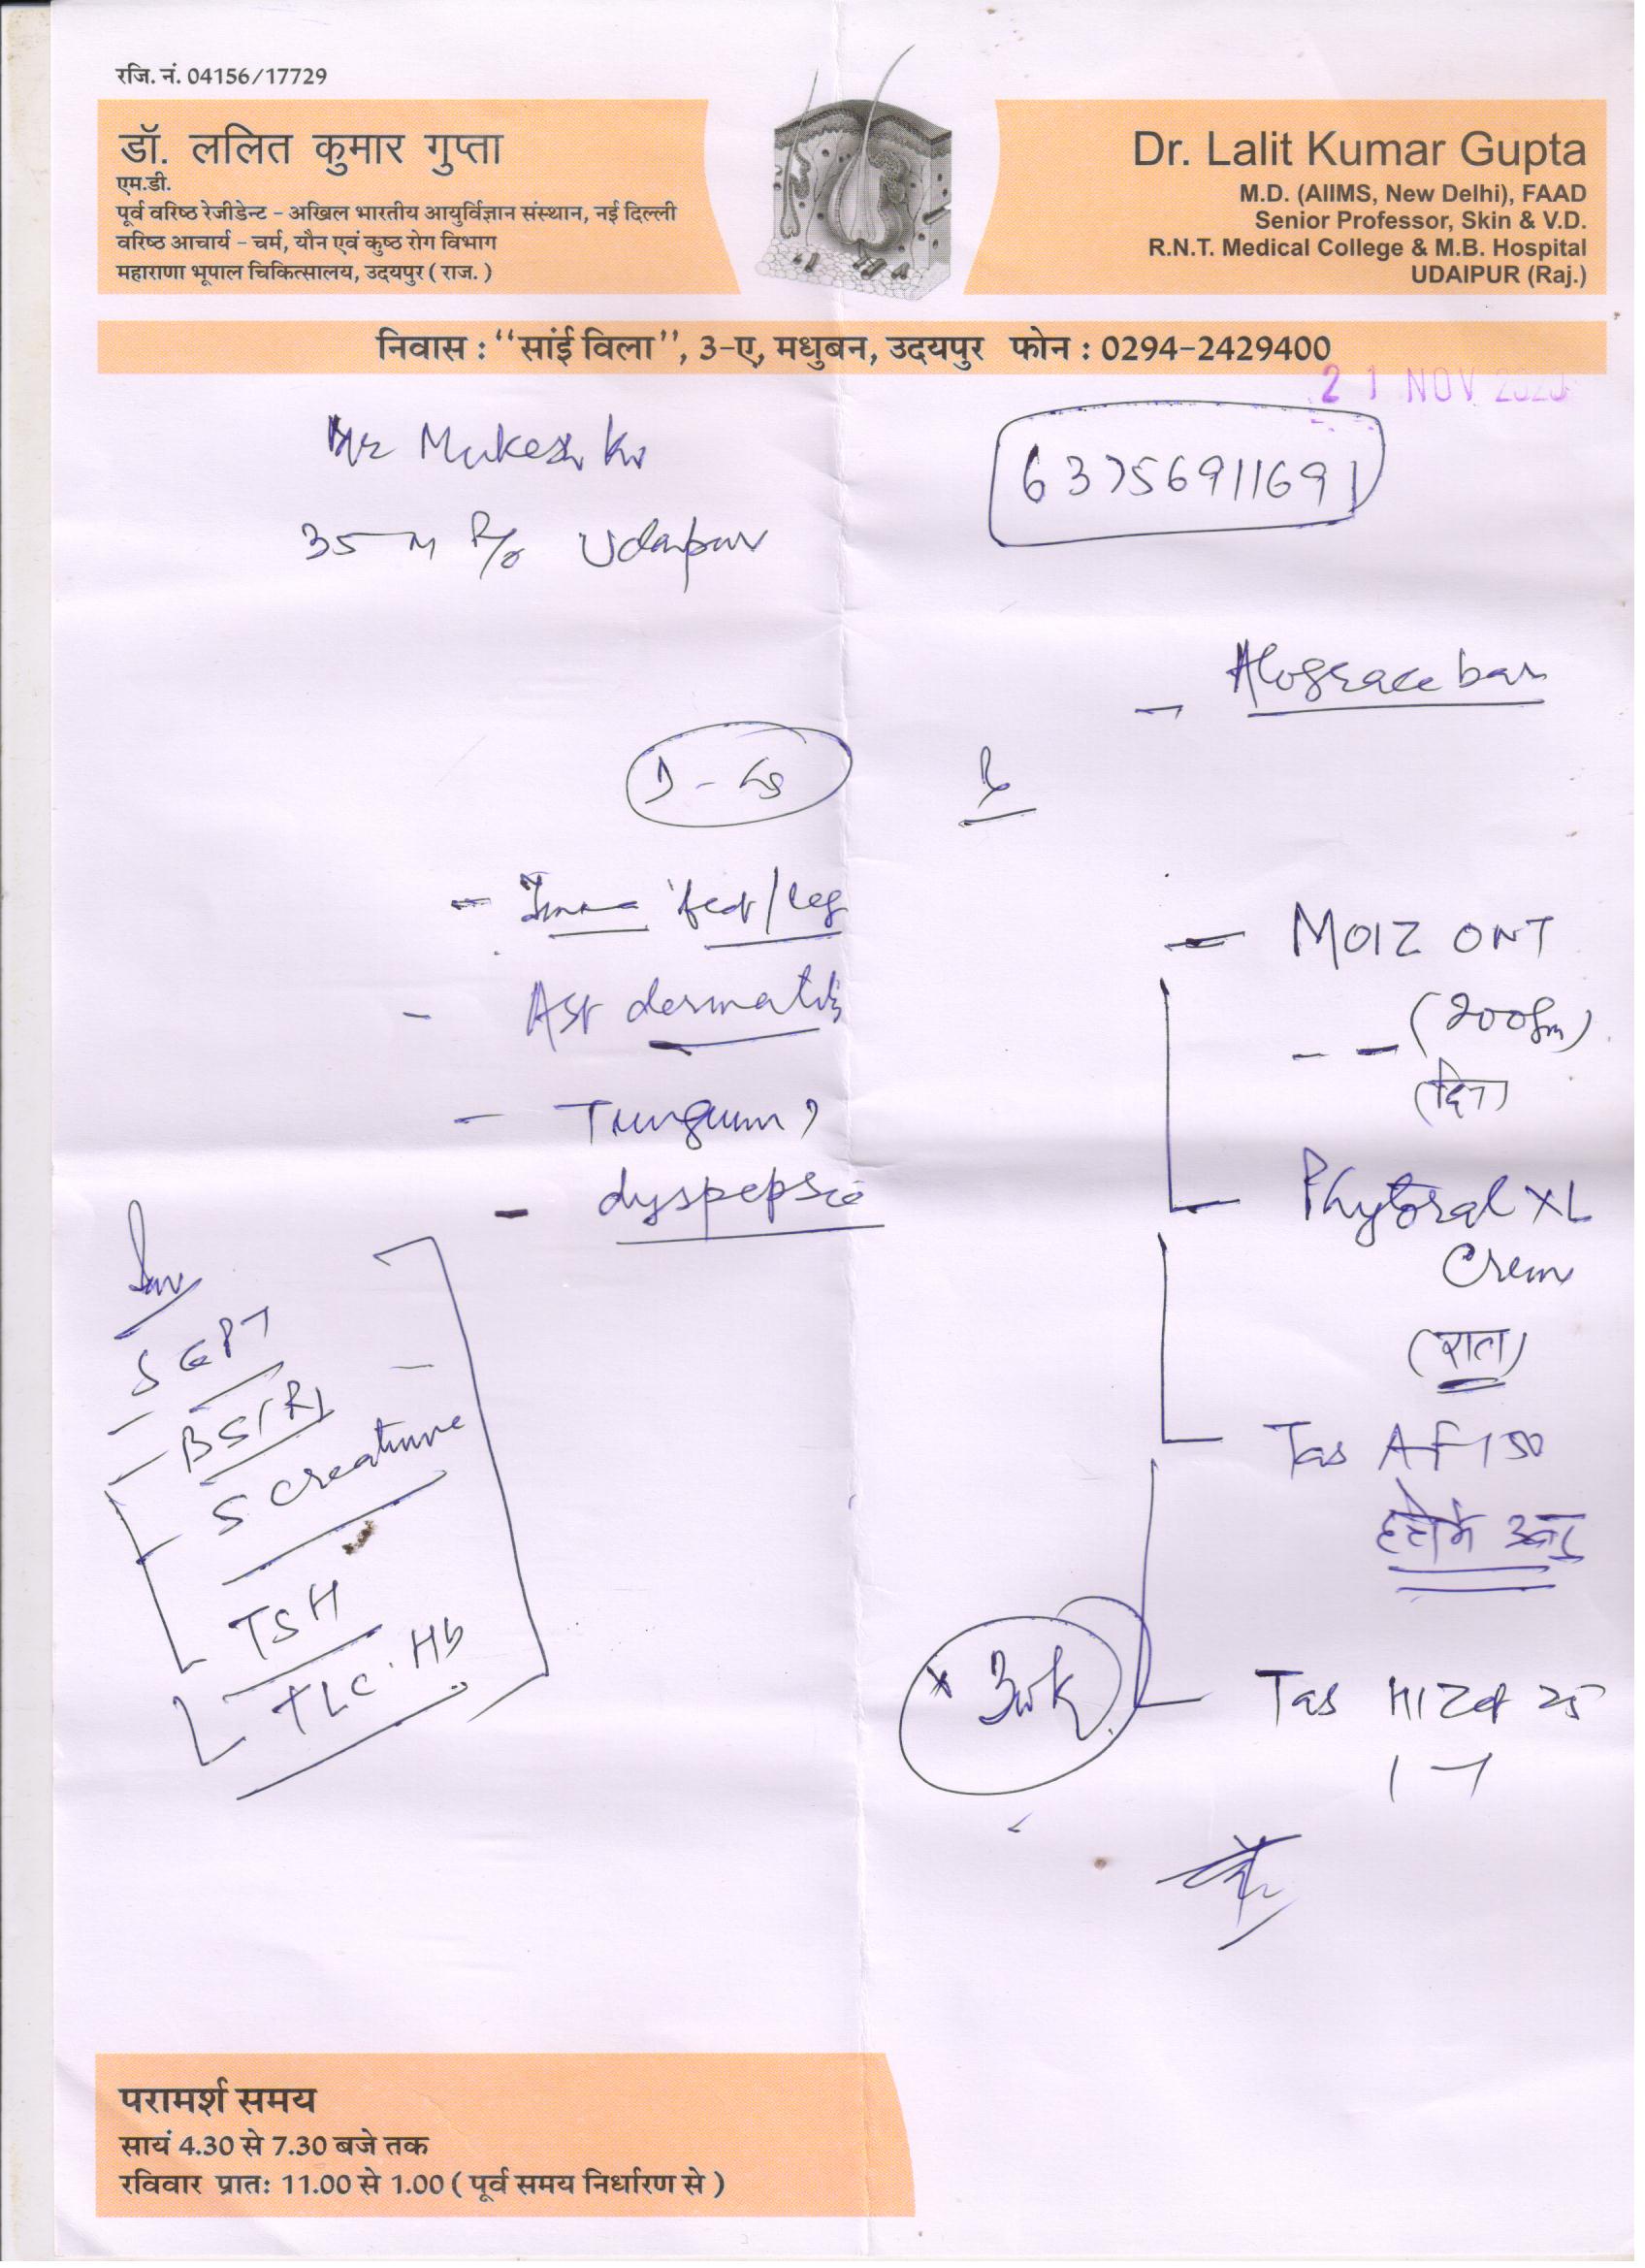 रजि. नं. 04156/17729
डॉ. ललित कुमार गुप्ता
एम.डी.
पूर्व वरिष्ठ रेजीडेन्ट - अखिल भारतीय आयुर्विज्ञान संस्थान, नई दिल्ली
वरिष्ठ आचार्य - चर्म, यौन एवं कुष्ठ रोग विभाग
महाराणा भूपाल चिकित्सालय, उदयपुर ( राज. )
Dr. Lalit Kumar Gupta
M.D. (AIIMS, New Delhi), FAAD
Senior Professor, Skin & V.D.
R.N.T. Medical College & M.B. Hospital
UDAIPUR (Raj.)
निवास : "सांई विला", 3-ए, मधुबन, उदयपुर फोन : 0294-2429400
21 NOV
Mr Mukesh Kr
35 M R/o Udaipur
6375691169
Alograce bar
leg
dermatitis
- dyspepsia
Inv
SGPT
- BS(R)
S creatinine
TSH
TLC. Hb
- MOIZ ONT
(200gm)
(दिन)
Phytoral XL
Crem
(रात)
Tab AF 150
x 3wk
Tab
परामर्श समय
सायं 4.30 से 7.30 बजे तक
रविवार प्रातः 11.00 से 1.00 ( पूर्व समय निर्धारण से )